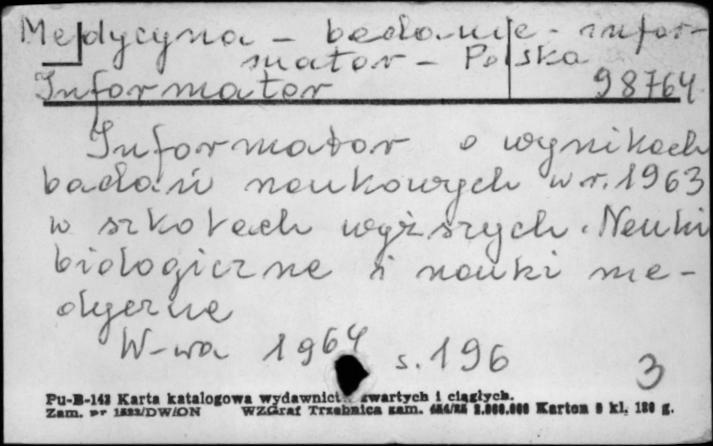 Medycyna - badanie - infor-
mator - Polska
Informator 98764
Informator o wynikach
badań naukowych w r. 1963
w szkołach wyższych. Nauki
biologiczne i nauki me-
dyczne
W-wa 1964 s. 196
3
Pu-B-143 Karta katalogowa wydawnictw zwartych i ciągłych.
Zam. nr /DW/ON WZGraf Trzebnica zam. 2.000.000 Karton kl. g.